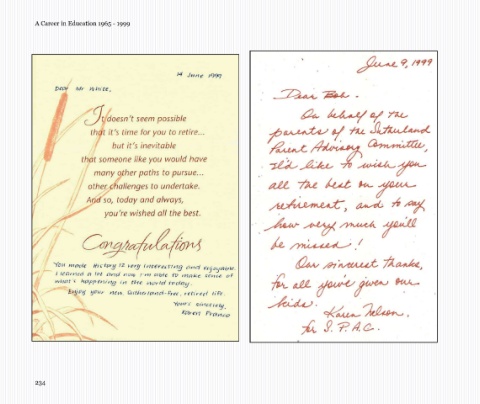 A Career in Education 1965 - 1999
14 June 1999
Dear Mr White,
It doesn't seem possible
that it's time for you to retire...
but it's inevitable
that someone like you would have
many other paths to pursue...
other challenges to undertake.
And so, today and always,
you're wished all the best.
Congratulations
You made History 12 very interesting and enjoyable.
I learned a lot and now I'm able to make sense of
what's happening in the world today.
Enjoy your new Sutherland-free, retired life.
Yours sincerely,
Robert Franco
June 9, 1999
Dear Bob.
On behalf of the
parents of the Sutherland
Parent Advisory Committee,
I'd like to wish you
all the best on your
retirement, and to say
how very much you'll
be missed!
Our sincerest thanks,
for all you've given our
kids.
Karen Nelson.
for S.P.A.C.
234